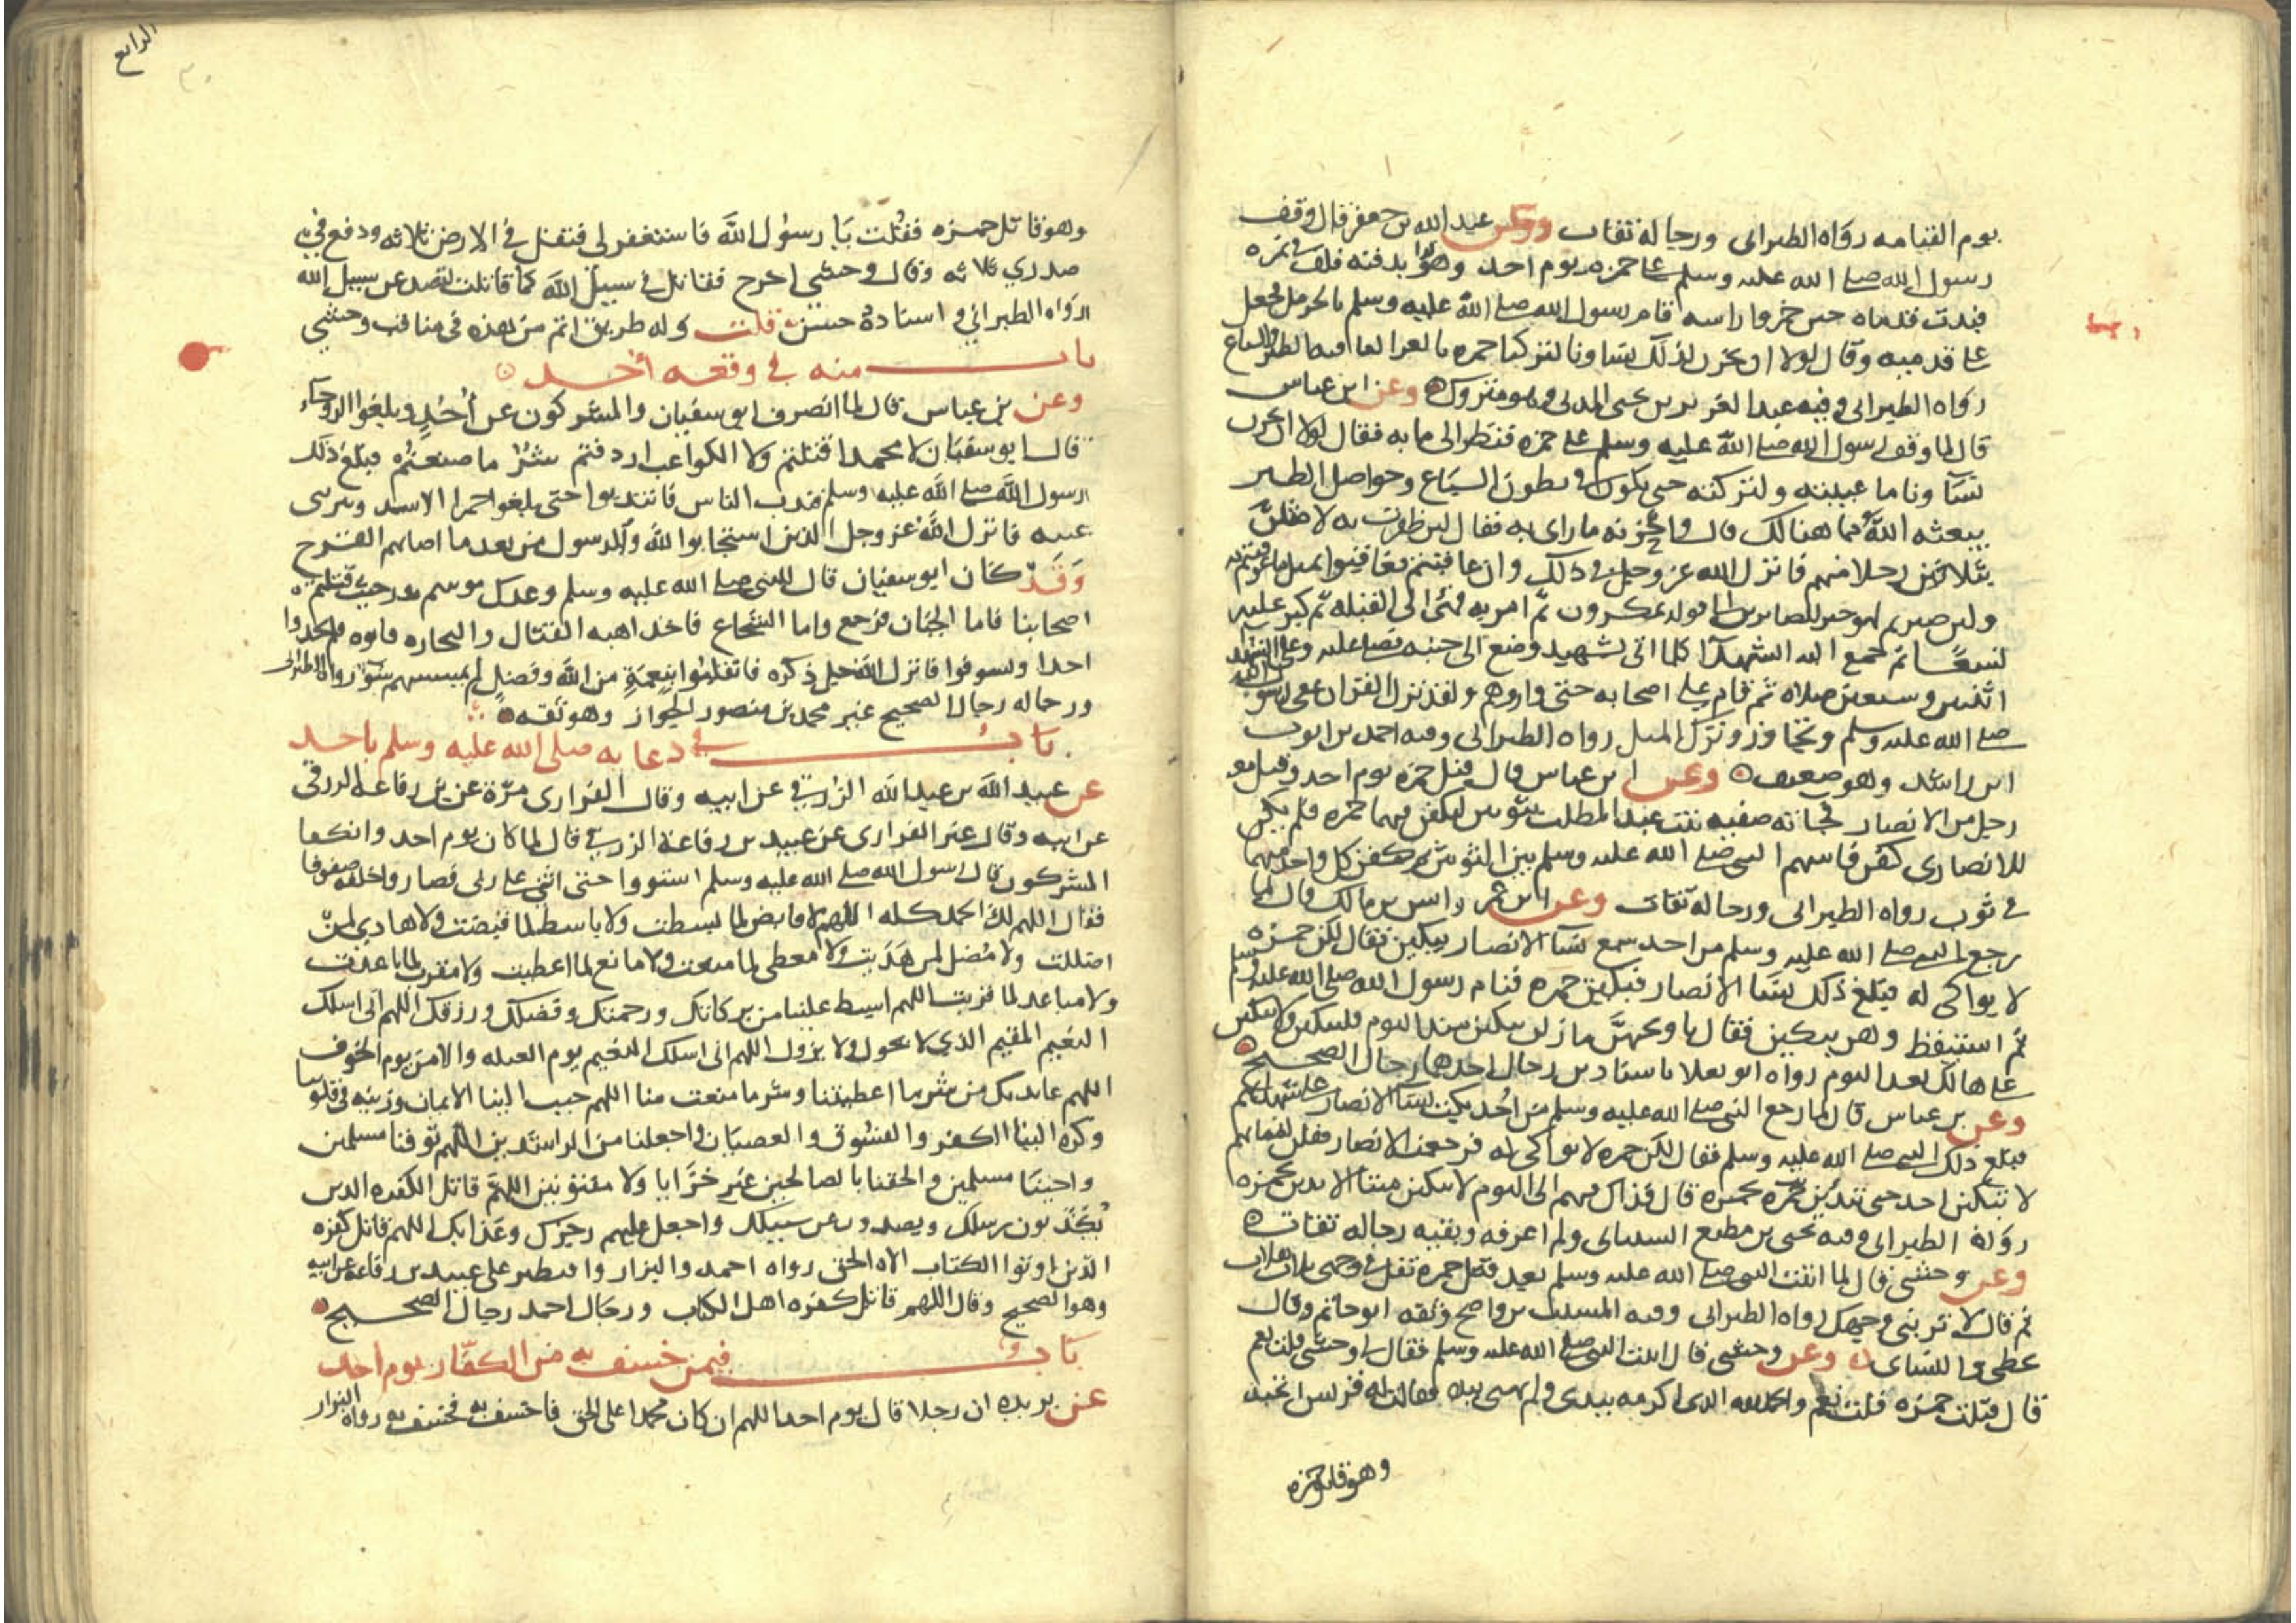 يوم القيامه رواه الطبراني ورجاله ثقات وعن عبد الله بن جعفر قال وقف
رسول الله صلى الله عليه وسلم على حمزه يوم احد وهو بدفنه فلف في نمره
فبدت قدماه حين خمروا راسه قام رسول الله صلى الله عليه وسلم بالحرمل فجعل
على قدميه وقال لولا ان تحزن لذلك نساونا لتركنا حمزه بالعرا لعافيه الطير والسباع
رواه الطبراني وفيه عبد العزيز بن يحيى المدني وهو متروك وعن ابن عباس
قال لما وقف رسول الله صلى الله عليه وسلم على حمزه فنظر الى ما به فقال لولا ان تحزن
نسآونا ما غيبته ولتركته حتى يكون في بطون السباع وحواصل الطير
يبعثه الله مما هنالك قال واحزنه ما راى به فقال لين ظفرت به لامثلن
بثلاثين رجلا منهم فانزل الله عز وجل في ذلك وان عاقبتم فعاقبوا بمثل ما عوقبتم به
ولين صبرتم لهو خير للصابرين الى قوله يمكرون ثم امر به فهئ الى القبله ثم كبر عليه
تسعا ثم جمع اليه الشهدآ كلما اتى بشهيد وضع الى جنبه فصلى عليه وعلى الشهدا
اثنين وسبعين صلاه ثم قام على اصحابه حتى واروهم ولقد نزل القران عفى رسول الله
صلى الله عليه وسلم وتجاوز وترك المثل رواه الطبراني وفيه احمد بن ايوب
ابن راشد وهو ضعيف وعن ابن عباس قال قتل حمزه يوم احد وقتل معه
رجل من الانصار فجاته صفيه بنت عبد المطلب بثوبين ليكفن فيهما حمزه فلم يكن
للانصاري كفن فاسهم النبي صلى الله عليه وسلم بين الثوبين ثم كفن كل واحد منهما
في ثوب رواه الطبراني ورجاله ثقات وعن ابن عمر وانس بن مالك قال لما
رجع النبي صلى الله عليه وسلم من احد سمع نسآ الانصار يبكين فقال لكن حمزه
لا بواكي له فبلغ ذلك نسا الانصار فبكين حمزه فنام رسول الله صلى الله عليه وسلم
ثم استيقظ وهن يبكين فقال يا ويحهن ما زلن يبكين منذ اليوم فليبكين ولا يبكين
على هالك بعد اليوم رواه ابو يعلا باسنادين رجال احدهما رجال الصحيح
وعن بن عباس قال لما رجع النبي صلى الله عليه وسلم من احُد بكت نسآ الانصار على شهدايهم
فبلغ ذلك النبي صلى الله عليه وسلم فقال لكن حمزه لا بواكي له فرجعت الانصار فقلن لنسايهم
لا تبكين احد حتى تبدين بحمزه قال فذاك فيهم الى اليوم لا يبكين ميتا الا بدين بحمزه
رواه الطبراني وفيه يحيى بن مطيع الشيباني ولم اعرفه وبقيه رجاله ثقات
وعن وحشي قال لما اتيت النبي صلى الله عليه وسلم بعد قتل حمزه تفل في وجهي ثلاث تفلات
ثم قال لا تريني وجهك رواه الطبراني وفيه المسيب بن واضح وثقه ابو حاتم وقال
يخطي والنساي وعن وحشي قال اتيت النبي صلى الله عليه وسلم فقال لي وحشي قلت نعم
قال قتلت حمزه قلت نعم والحمد لله الذي اكرمه بيدي ولم يهني بيده فقالت له قريش اتحبه
وهو قاتل حمزه
الرابع
وهو قاتل حمزه فقُلت يا رسول الله فاستغفر لي فتفل في الارض ثلاثه ودفع في
صدري ثلاثه وقال وحشي اخرج فقاتل في سبيل الله كما قاتلت لتصد عن سبيل الله
رواه الطبراني واسناده حسن قلت وله طريق اتم من هذه في مناقب وحشي
باب منه في وقعه أحد
وعن بن عباس قال لما انصرف ابو سفيان والمشركون عن أُحُدٍ وبلغوا الروحآء
قال ابو سفيان لا محمدا قتلتم ولا الكواعب اردفتم شرُ ما صنعتُم فبلغ ذلك
رسول الله صلى الله عليه وسلم فندب الناس فانتدبوا حتى بلغوا حمرا الاسد وبئر ابي
عيينه فانزل الله عز وجل الذين استجابوا لله والرسول من بعد ما اصابهم القرح
وَقَد كان ابو سفيان قال للنبي صلى الله عليه وسلم وعدك موسم بدر حيث قتلتم
اصحابنا فاما الجبان فرجع واما الشجاع فاخذ اهبه القتال والتجاره فاتوه فلم يجدوا
احدا وتسوقوا فانزل الله جل ذكره فانقلبوا بنعمةٍ من الله وفضلٍ لم يمسسهم سوٓء رواه الطبراني
ورجاله رجال الصحيح غير محمد بن منصور الجواز وهو ثقه
باب في دعايه صلى الله عليه وسلم باحد
عن عبيد الله بن عبد الله الزرقي عن ابيه وقال الفزاري مرّة عن بن رفاعه الزرقي
عن ابيه وقال غير الفزاري عن عبيد بن رفاعة الزرقي قال لما كان يوم احد وانكفا
المشركون قال رسول الله صلى الله عليه وسلم استووا حتى اثني على ربي فصاروا خلفه صفوفا
فقال اللهم لك الحمد كله اللهم لا قابض لما بسطت ولا باسط لما قبضت ولا هادي لمن
اضللت ولا مُضل لمن هَدَيت ولا معطي لما منعت ولا مانع لما اعطيت ولا مقرب لما باعدت
ولا مباعد لما قربت اللهم ابسط علينا من بركاتك ورحمتك وفضلك ورزقك اللهم اني اسلك
النعيم المقيم الذي لا يحول ولا يزول اللهم اني اسلك النعيم يوم العيله والامن يوم الخوف
اللهم عايذ بك من شر ما اعطيتنا وشر ما منعت منا اللهم حبب الينا الايمان وزينه في قلوبنا
وكره الينا الكفر والفسُوق والعصيان واجعلنا من الراشدين اللهم توفنا مسلمين
واحينا مسلمين والحقنا بالصالحين غير خزايا ولا مفتونين اللهمّ قاتل الكفره الذين
يُكَذّبون رسلك ويصدون عن سبيلك واجعل عليهم رجزك وعذابك اللهم قاتل كفره
الذين اوتوا الكتاب الاه الحق رواه احمد والبزار واقتصر على عبيد بن رفاعه عن ابيه
وهو الصحيح وقال اللهم قاتل كفره اهل الكتاب ورجال احمد رجال الصحيح
باب فيمن خسف به من الكفّار يوم احد
عن بريده ان رجلا قال يوم احد اللهم ان كان محمدا على الحق فاخسف به فخسف به رواه البزار